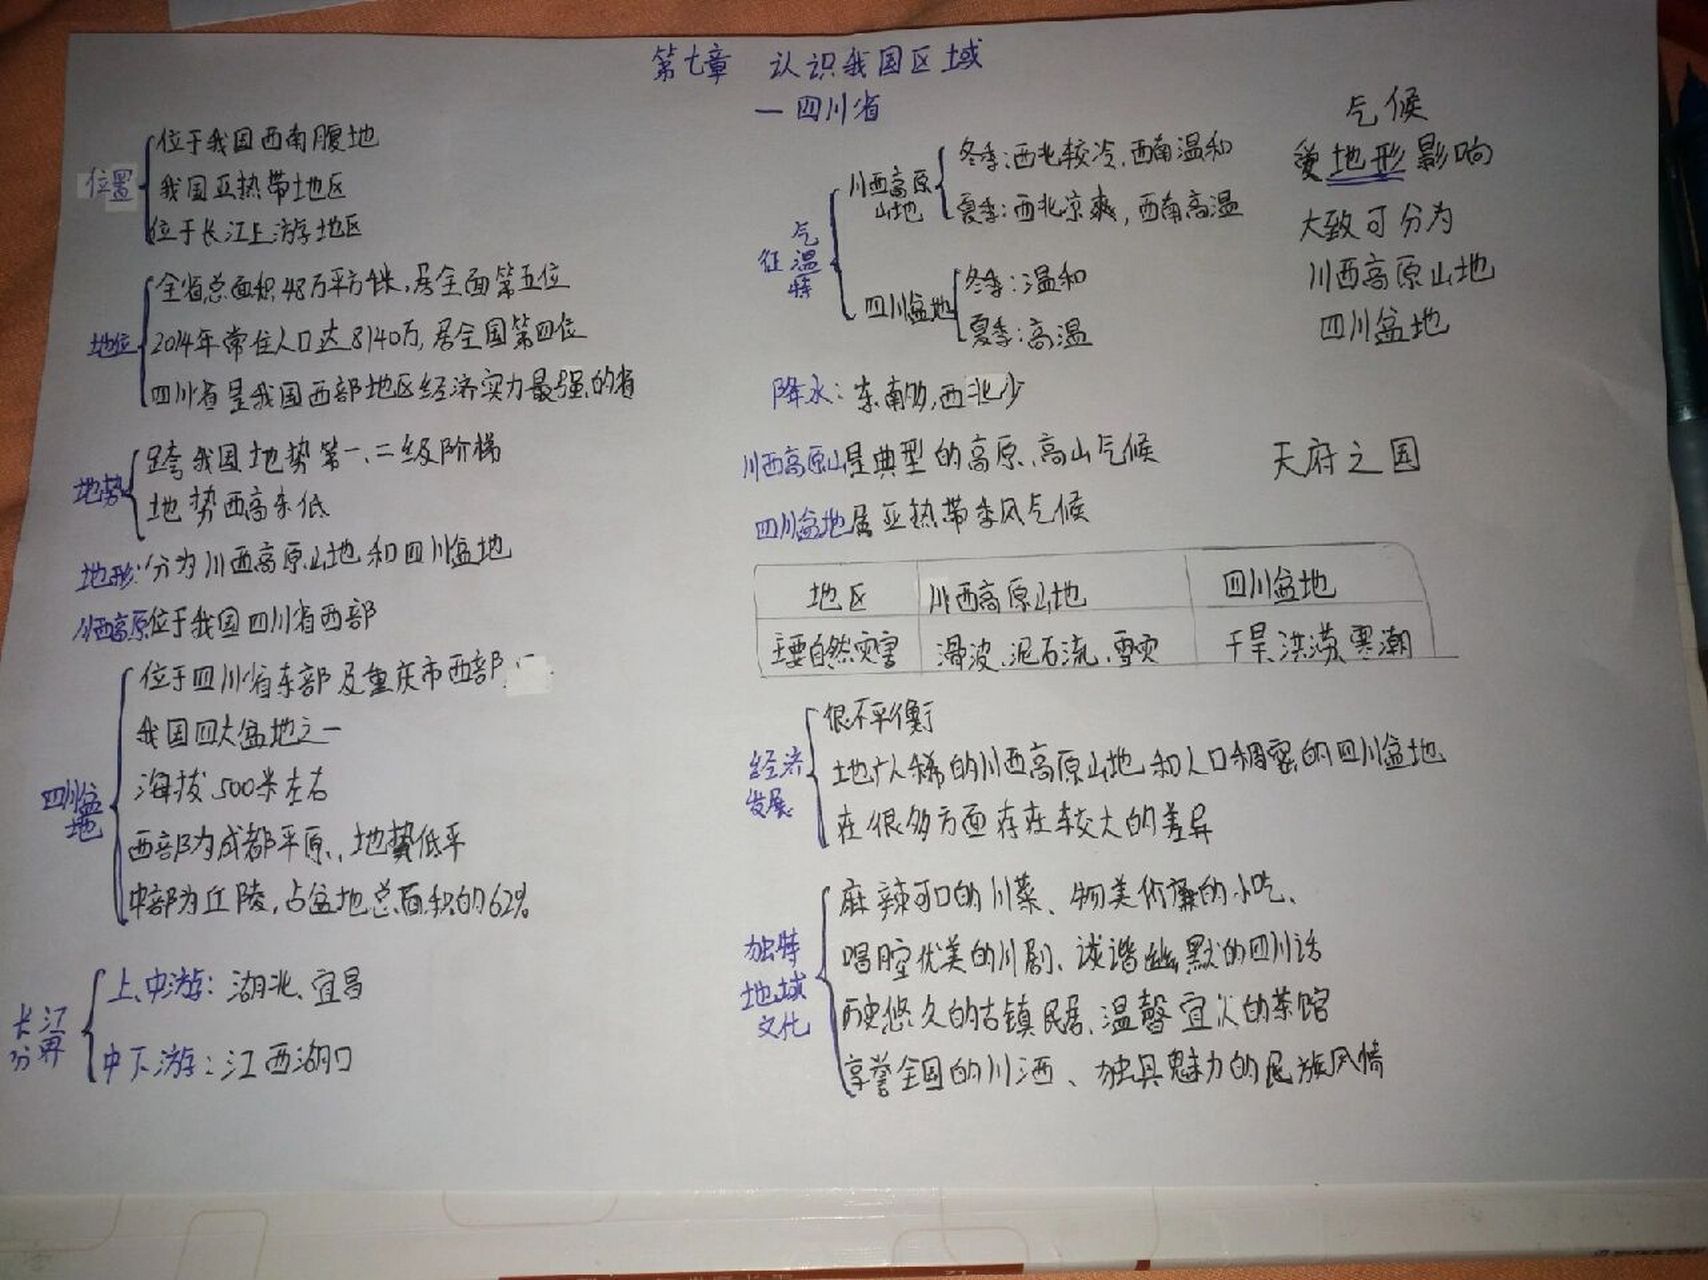 第七章 认识我国区域
—四川省
位置
位于我国西南腹地
我国亚热带地区
位于长江上游地区
地位
全省总面积48万平方千米,居全面第五位
2014年常住人口达8140万,居全国第四位
四川省是我国西部地区经济实力最强的省
地势
跨我国地势第一、二级阶梯
地势西高东低
地形:分为川西高原山地和四川盆地
川西高原位于我国四川省西部
四川盆地
位于四川省东部及重庆市西部
我国四大盆地之一
海拔500米左右
西部为成都平原,地势低平
中部为丘陵,占盆地总面积的62%
长江分界
上、中游:湖北、宜昌
中下游:江西湖口
气温特征
川西高原山地
冬季:西北较冷,西南温和
夏季:西北凉爽,西南高温
四川盆地
冬季:温和
夏季:高温
降水:东南多,西北少
川西高原山是典型的高原、高山气候
四川盆地属亚热带季风气候
气候
受地形影响
大致可分为
川西高原山地
四川盆地
天府之国
地区 川西高原山地 四川盆地
主要自然灾害 滑波、泥石流、雪灾 干旱、洪涝、寒潮
经济发展
很不平衡
地广人稀的川西高原山地和人口稠密的四川盆地
在很多方面存在较大的差异
独特地域文化
麻辣可口的川菜、物美价廉的小吃、
唱腔优美的川剧、诙谐幽默的四川话
历史悠久的古镇民居、温馨宜人的茶馆
享誉全国的川酒、独具魅力的民族风情